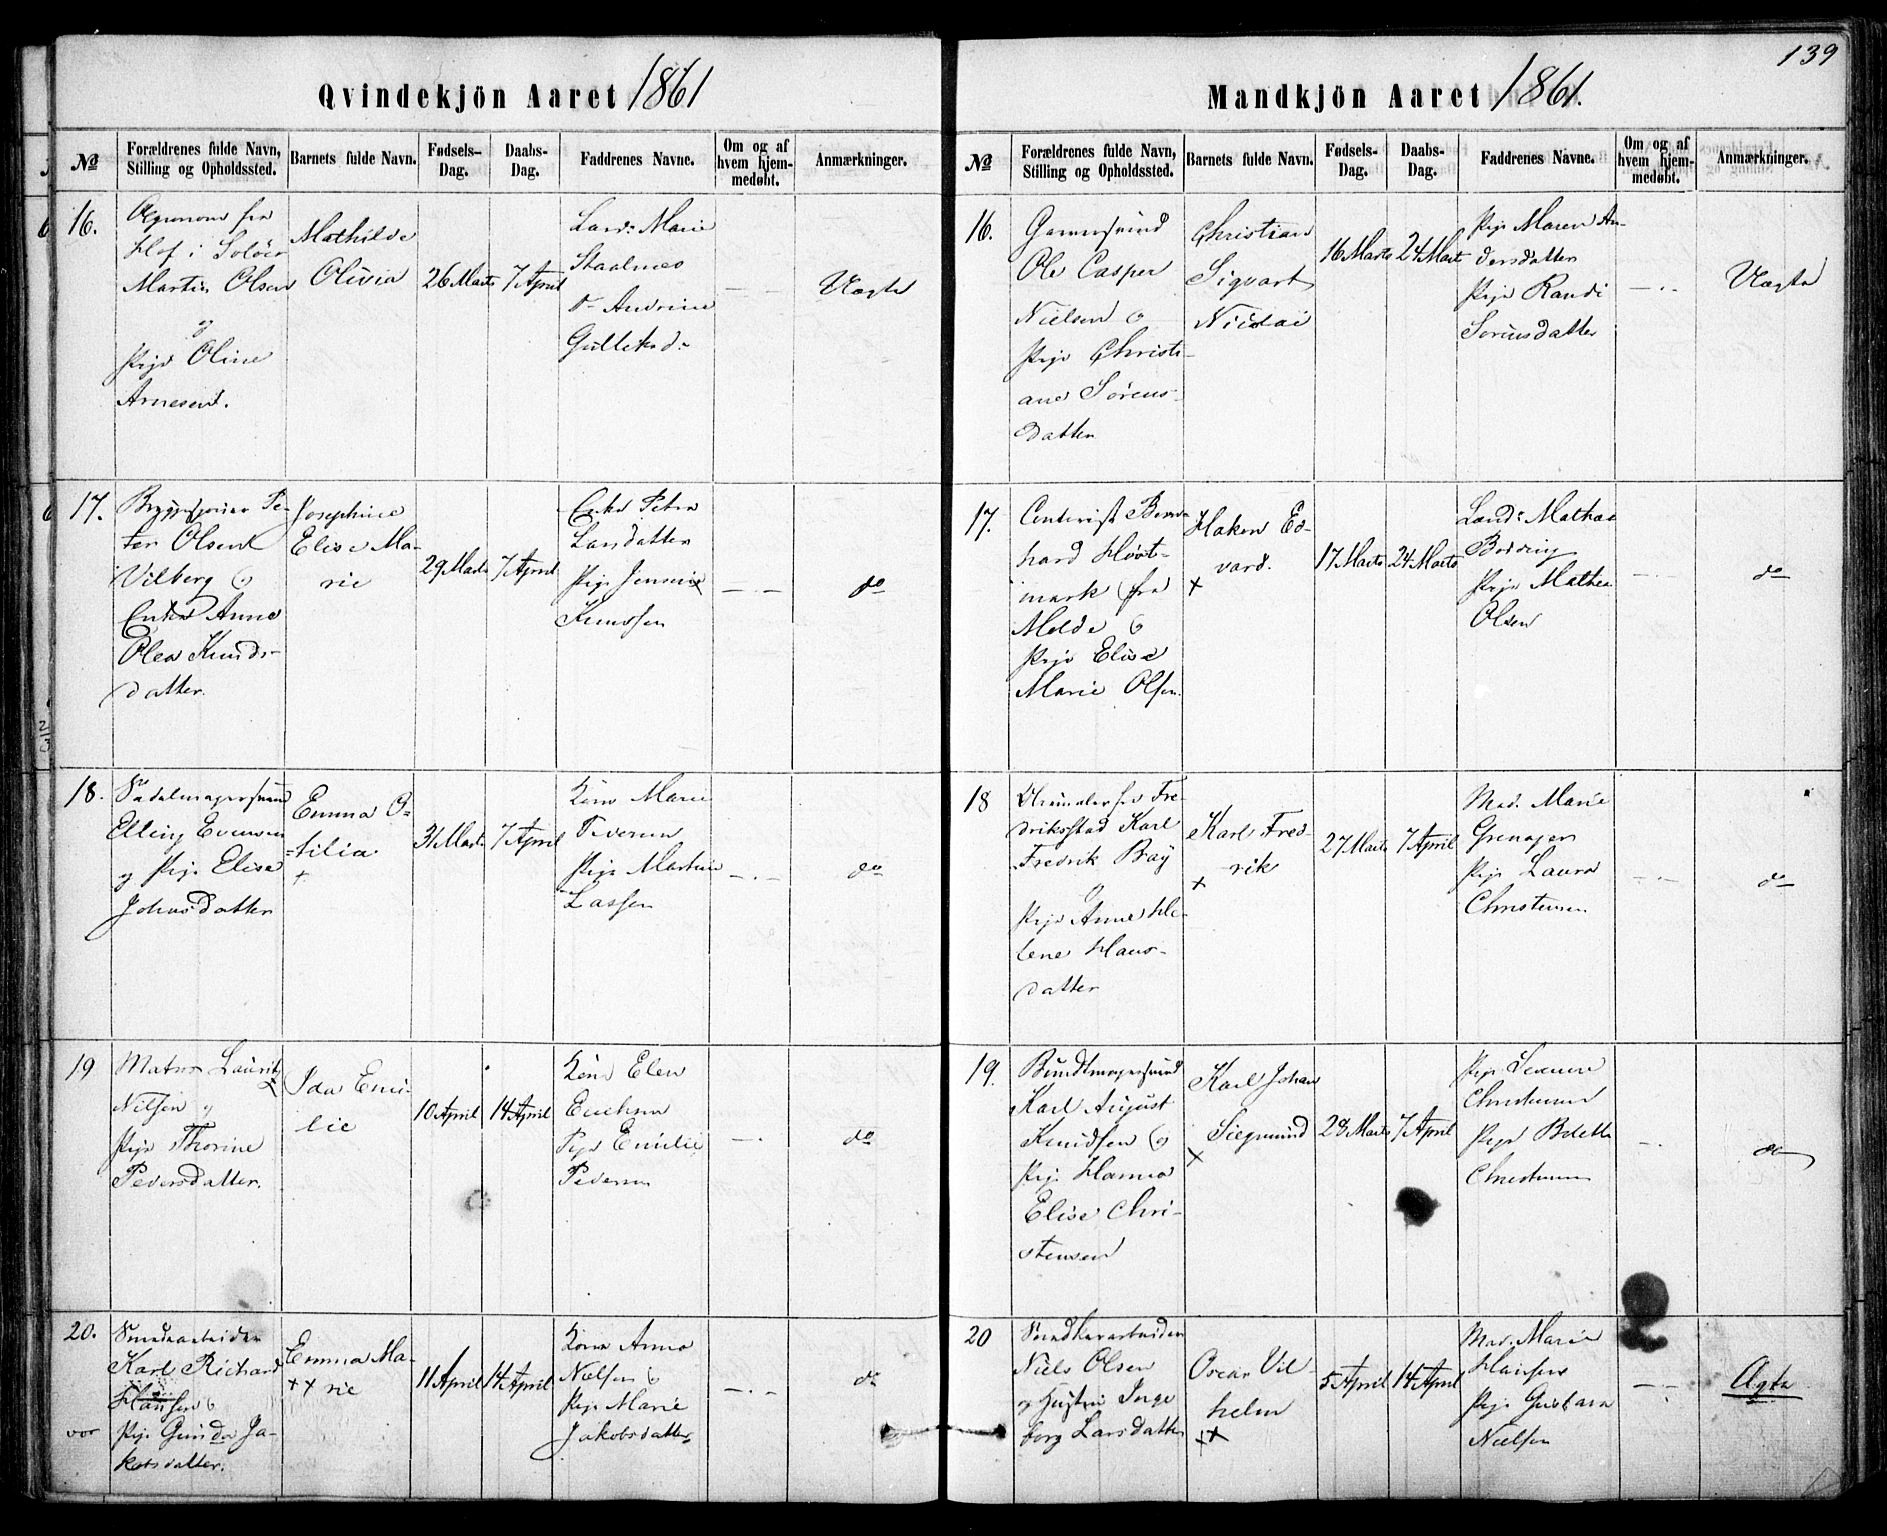 139
Qvindekjön Aaret 1861
No
Forældrenes fulde Navn,
Stilling og Opholdssted.
Barnets fulde Navn.
Fødsels-
Dag.
Daabs-
Dag.
Faddrenes Navne.
Om og af
hvem hjem-
medøbt.
Anmærkninger.
16.
fra
Hof i Solöer
Martin Olsen
og
Pige Oline
Arnesen.
Mathilde
Olivia
26 Marts
7 April
Marie
Andrine
Uægte
17.
Pe-
ter Olsen
Vilberg og
Enke Anne
Olea Knuds-
datter.
Josephine
Elise Ma-
rie
29 Marts
7 April
Enke Petra
Larsdatter
Pige
Knudsen
do
18.
Sadelmagersvend
Elling Evensen
og Pige Elise
Johnsdatter
Emma O-
tilia
+
31 Marts
7 April
Kone Marie
Pedersen
Pige Martine
Lassen
do
19
Matros Lauritz
Nilsen og
Pige Thorine
Pedersdatter.
Ida Emi-
lie
10 April
14 April
Kone Elen
Erichsen
Pige Emilie
Pedersen
do
20.
Karl Richard
Hansen og
Pige Gunda Ja-
kobsdatter.
vor
Emma Ma-
++ rie
11 April
14 April
Kone Anna
Nielsen og
Pige Marie
Jakobsdatter
do
Mandkjön Aaret 1861.
No
Forældrenes fulde Navn,
Stilling og Opholdssted.
Barnets fulde Navn.
Fødsels-
Dag.
Daabs-
Dag.
Faddrenes Navne.
Om og af
hvem hjem-
medøbt.
Anmærkninger.
16.
Garversvend
Ole Casper
Nielsen og
Pige Christi-
ane Sörens-
datter
Christian
Sigvart
Nicolai
16 Marts
24 Marts
Pige Maren An-
dersdatter
Pige Randi
Sorensdatter
Uægte
17.
Contorist Bern-
hard
mark fra
Molde og
Pige Elise
Marie Olsen.
Hakon Ed-
vard.
+
17 Marts
24 Marts
Mathea
Pige Mathea
Olsen
do
18
fra Fre-
driksstad Karl
Fredrik
og
Pige Anne He-
lene Hans-
datter
Karl Fred-
rik
+
27 Marts
7 April
Mad. Marie
Pige Laura
Christensen
do
19.
Bundtmagersvend
Karl August
Knudsen og
Pige Hanna
Elise Chri-
stensen
Karl Johan
Siegmund
+
28 Marts
7 April
Pige
Christensen
Pige Bolette
Christensen
do
20
Niels Olsen
og Hustru Inge
borg Larsdatter
Oscar Vil
helm
++
5 April
14 April
Mad. Marie
Hansen
Pige Gustava
Nielsen
Ægte